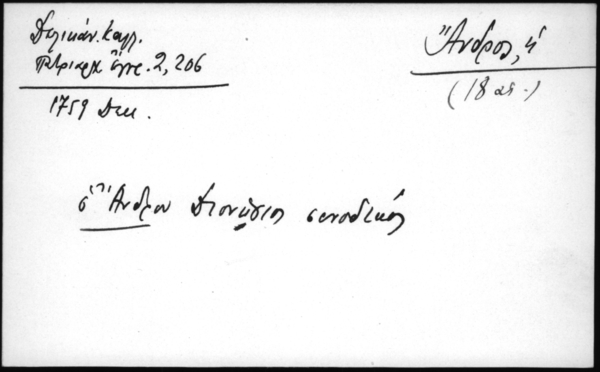 Δελικάν. Καλλ.
Πατριαρχ. ἔγγρ. 2, 206
1759 Δεκ.
Ἄνδρος, ἡ
(18 αἰ.)
ὁ Ἄνδρου Διονύσιος συνοδικός